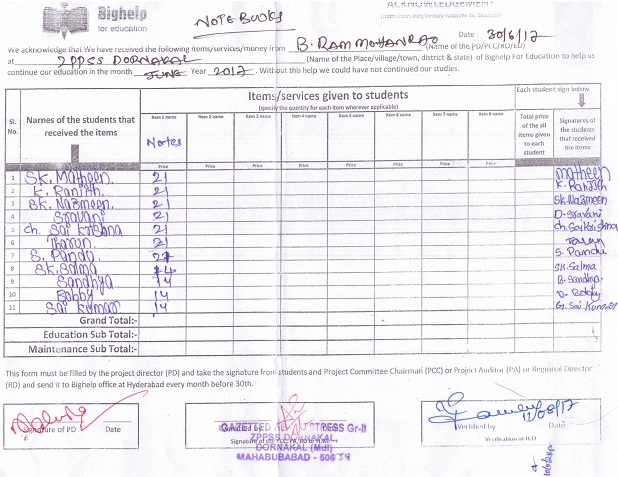 Bighelp
for education
NOTE BOOKS
ACKNOWLEDGEMENT
(Items/services/money features to Student)
Date : 30/6/17
We acknowledge that We have received the following items/services/money from B. RAM MOHAN RAO (Name of the PD/PCC/RD/ED)
at ZPPSS DORNAKAL (Name of the Place/village/town, district & state) of Bighelp For Education to help us
continue our education in the month JUNE Year 2017. Without this help we could not have continued our studies.
Sl. No.
Names of the students that received the items
Items/services given to students
(specify the quantity for each item wherever applicable)
Each student sign below
Item 1 name Item 2 name Item 3 name Item 4 name Item 5 name Item 6 name Item 7 name Item 8 name
Notes
Total price of the all items given to each student
Signatures of the students that received the items
Price Price Price Price Price Price Price Price
1 SK. Matheen 21 matheen
2 K. Ranjith 21 K. Ranjith
3 SK. Nazmeen 21 SK. Nazmeen
4 Sravani 21 D. Sravani
5 Ch. Sai Krishna 21 Ch. Sai Krishna
6 Tharun 21 Tarun
7 S. Pandu 21 S. Pandu
8 SK. Salma 14 SK. Salma
9 Sandhya 14 B. Sandhya
10 Bobby 14 Bobby
11 Sai Kumar 14 G. Sai Kumar
Grand Total:-
Education Sub Total:-
Maintenance Sub Total:-
This form must be filled by the project director (PD) and take the signature from students and Project Committee Chairman (PCC) or Project Auditor (PA) or Regional Director
(RD) and send it to Bighelp office at Hyderabad every month before 30th.
Signature of PD Date
GAZETTED HEADMISTRESS Gr-II
ZPPSS DORNAKAL
DORNAKAL (Mdl)
MAHABUBABAD - 506
12/08/17
Verified by Date
Verification at H.O